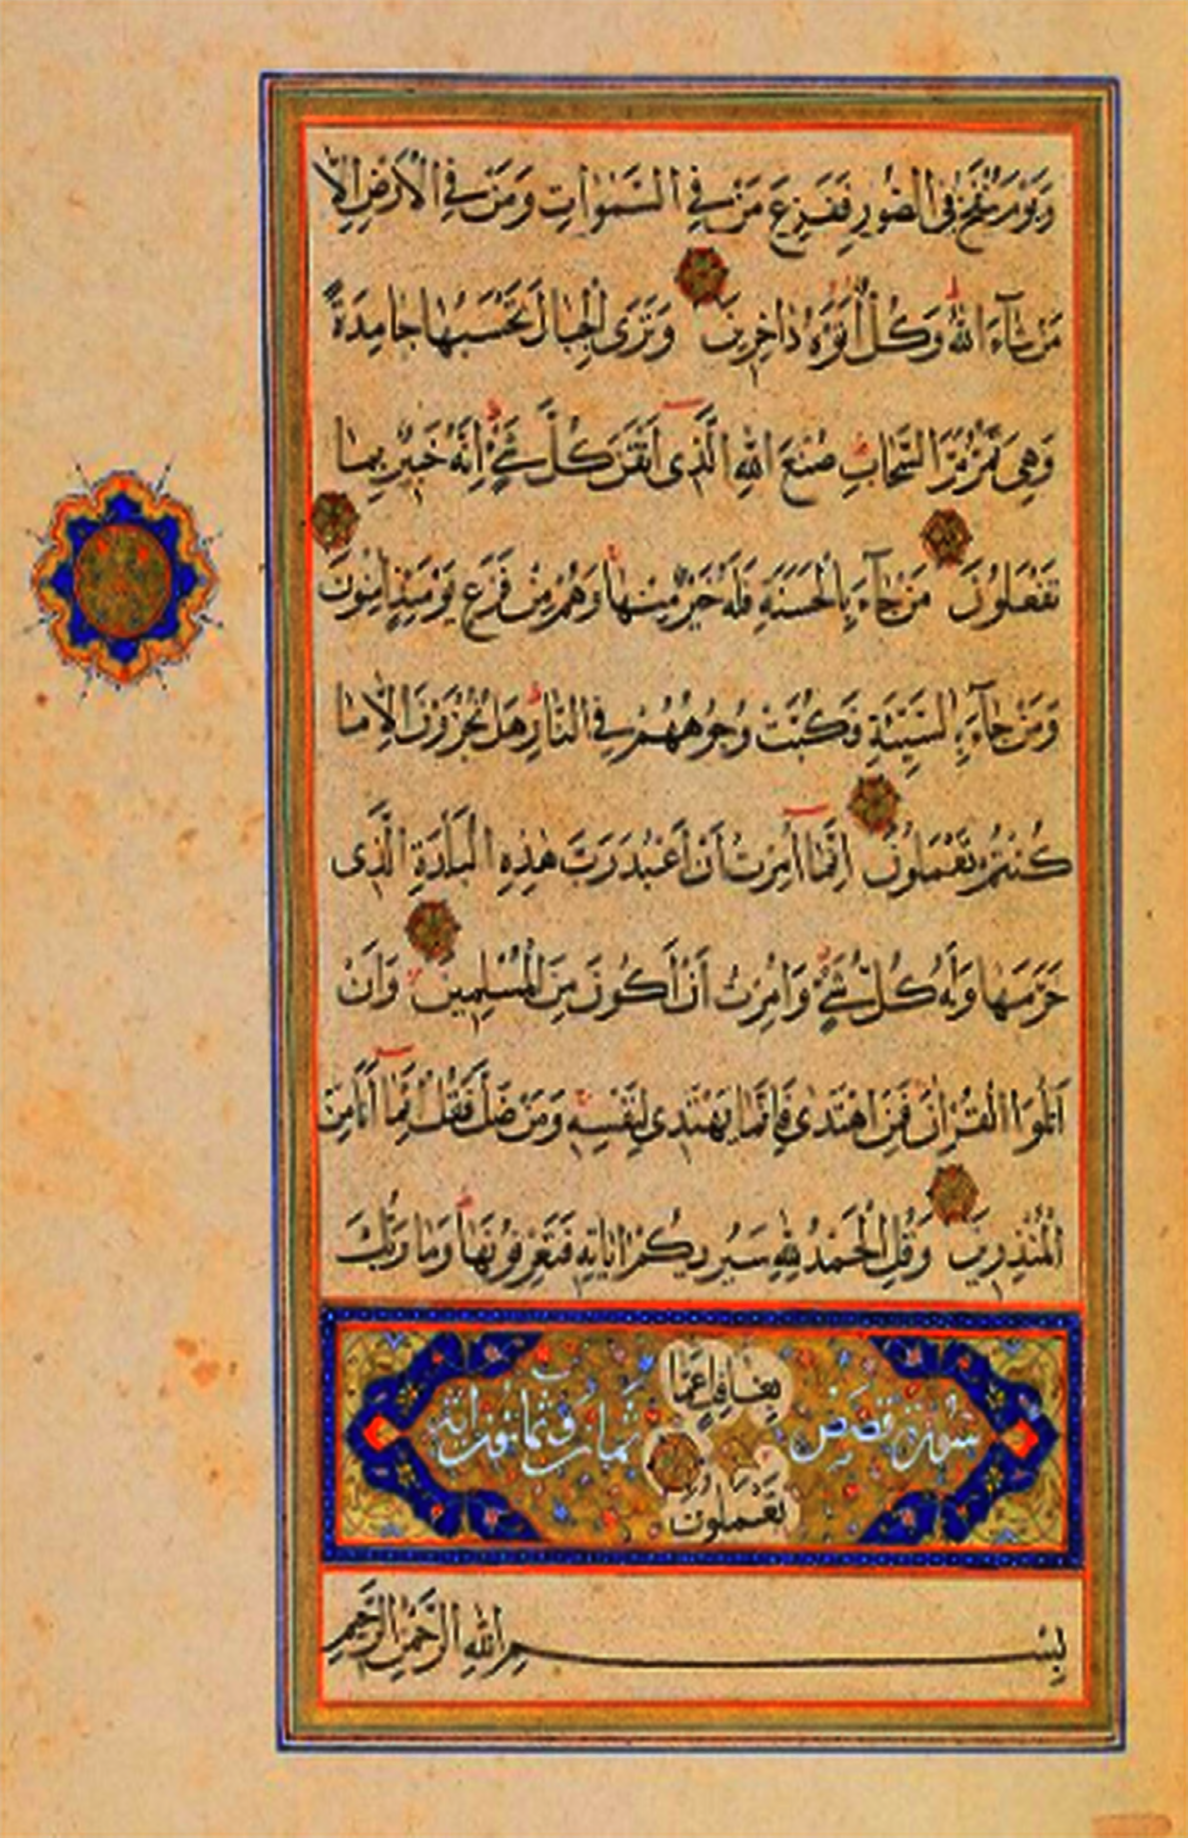 وَيَوْمَ يُنْفَخُ فِى الصُّورِ فَفَزِعَ مَنْ فِى السَّمٰوَاتِ وَمَنْ فِى الْاَرْضِ اِلَّا
مَنْ شَآءَ اللّٰهُ وَكُلٌّ اَتَوْهُ دَاخِرِينَ وَتَرَى الْجِبَالَ تَحْسَبُهَا جَامِدَةً
وَهِىَ تَمُرُّ مَرَّ السَّحَابِ صُنْعَ اللّٰهِ الَّذِى اَتْقَنَ كُلَّ شَىْءٍ اِنَّهُ خَبِيرٌ بِمَا
تَفْعَلُونَ مَنْ جَآءَ بِالْحَسَنَةِ فَلَهُ خَيْرٌ مِنْهَا وَهُمْ مِنْ فَزَعٍ يَوْمَئِذٍ اٰمِنُونَ
وَمَنْ جَآءَ بِالسَّيِّئَةِ فَكُبَّتْ وُجُوهُهُمْ فِى النَّارِ هَلْ تُجْزَوْنَ اِلَّا مَا
كُنْتُمْ تَعْمَلُونَ اِنَّمَا اُمِرْتُ اَنْ اَعْبُدَ رَبَّ هٰذِهِ الْبَلْدَةِ الَّذِى
حَرَّمَهَا وَلَهُ كُلُّ شَىْءٍ وَاُمِرْتُ اَنْ اَكُونَ مِنَ الْمُسْلِمِينَ وَاَنْ
اَتْلُوَا الْقُرْاٰنَ فَمَنِ اهْتَدٰى فَاِنَّمَا يَهْتَدِى لِنَفْسِهِ وَمَنْ ضَلَّ فَقُلْ اِنَّمَا اَنَا مِنَ
الْمُنْذِرِينَ وَقُلِ الْحَمْدُ لِلّٰهِ سَيُرِيكُمْ اٰيَاتِهِ فَتَعْرِفُونَهَا وَمَا رَبُّكَ
بِغَافِلٍ عَمَّا
سورة قصص ثمان وثمانون اية
تَعْمَلُونَ
بِسْمِ اللّٰهِ الرَّحْمٰنِ الرَّحِيمِ